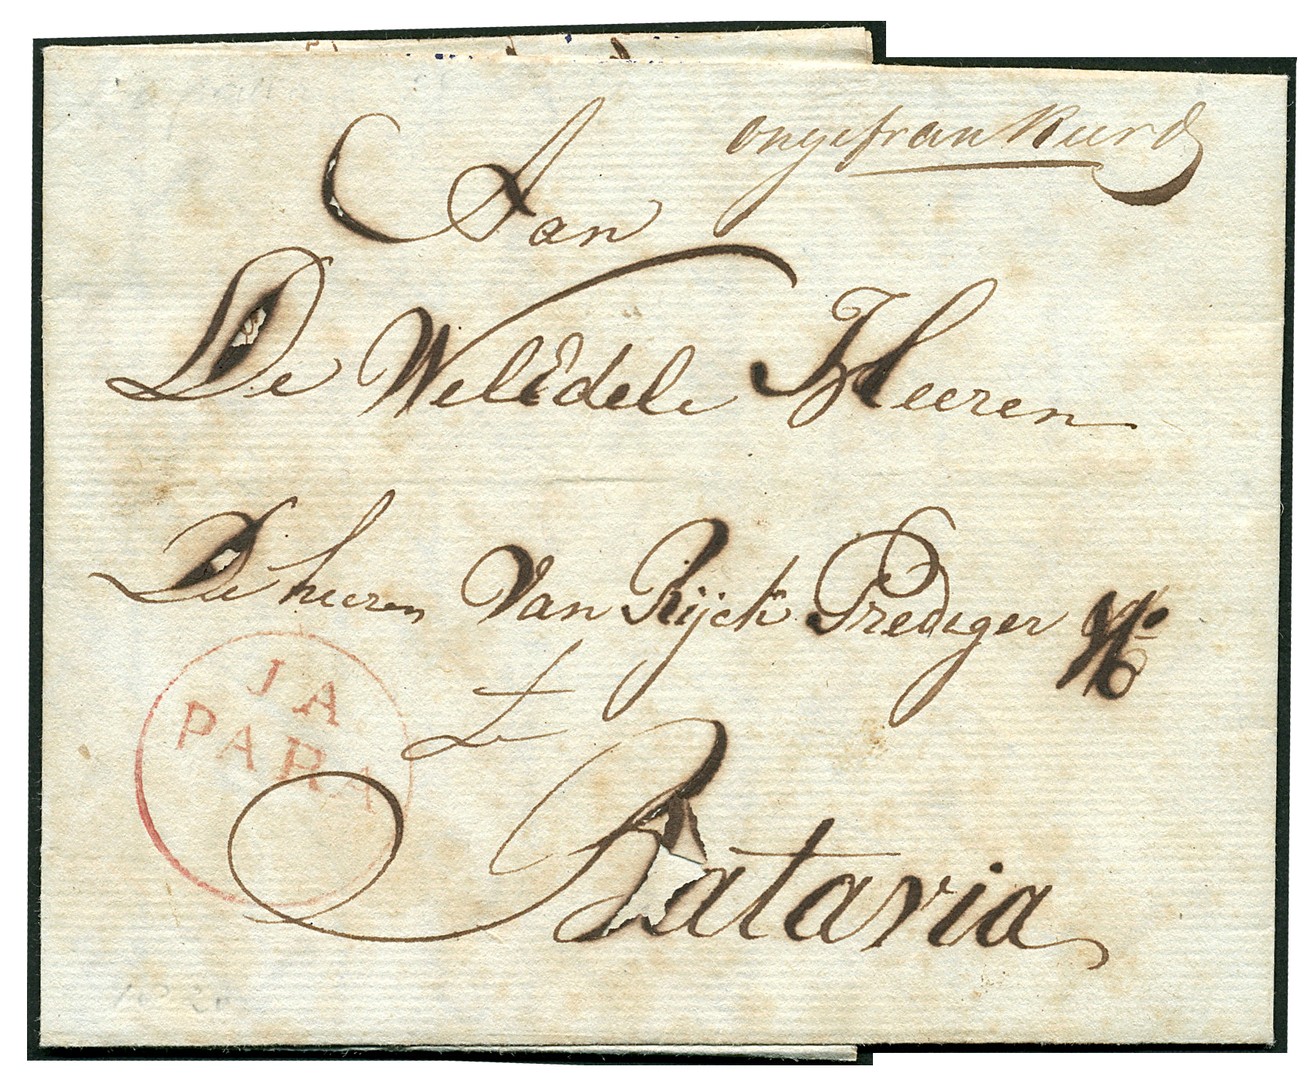 ongefrankeerd
Aan
De WelEdele Heeren
De heeren Van Rijck Prediger &co
te
Batavia
JA
PARA